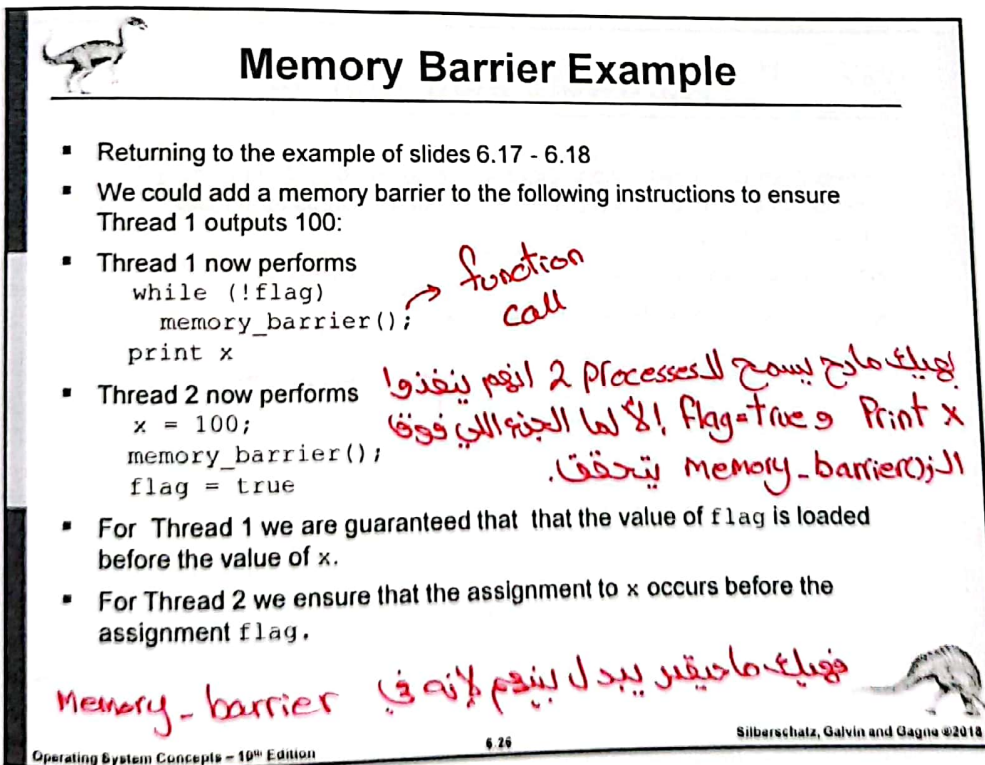 Memory Barrier Example
▪ Returning to the example of slides 6.17 - 6.18
▪ We could add a memory barrier to the following instructions to ensure
Thread 1 outputs 100:
▪ Thread 1 now performs
while (!flag)
memory_barrier();
print x
→ function
call
▪ Thread 2 now performs
x = 100;
memory_barrier();
flag = true
بهيك مارح يسمح لل 2 processes انهم ينفذوا
Print x و flag=true إلا لما الجزء اللي فوق
ال memory_barrier(); يتحقق.
▪ For Thread 1 we are guaranteed that that the value of flag is loaded
before the value of x.
▪ For Thread 2 we ensure that the assignment to x occurs before the
assignment flag.
فهيك ما حيقدر يبدل بينهم لإنه في Memory_barrier
Operating System Concepts – 10th Edition
6.26
Silberschatz, Galvin and Gagne ©2018